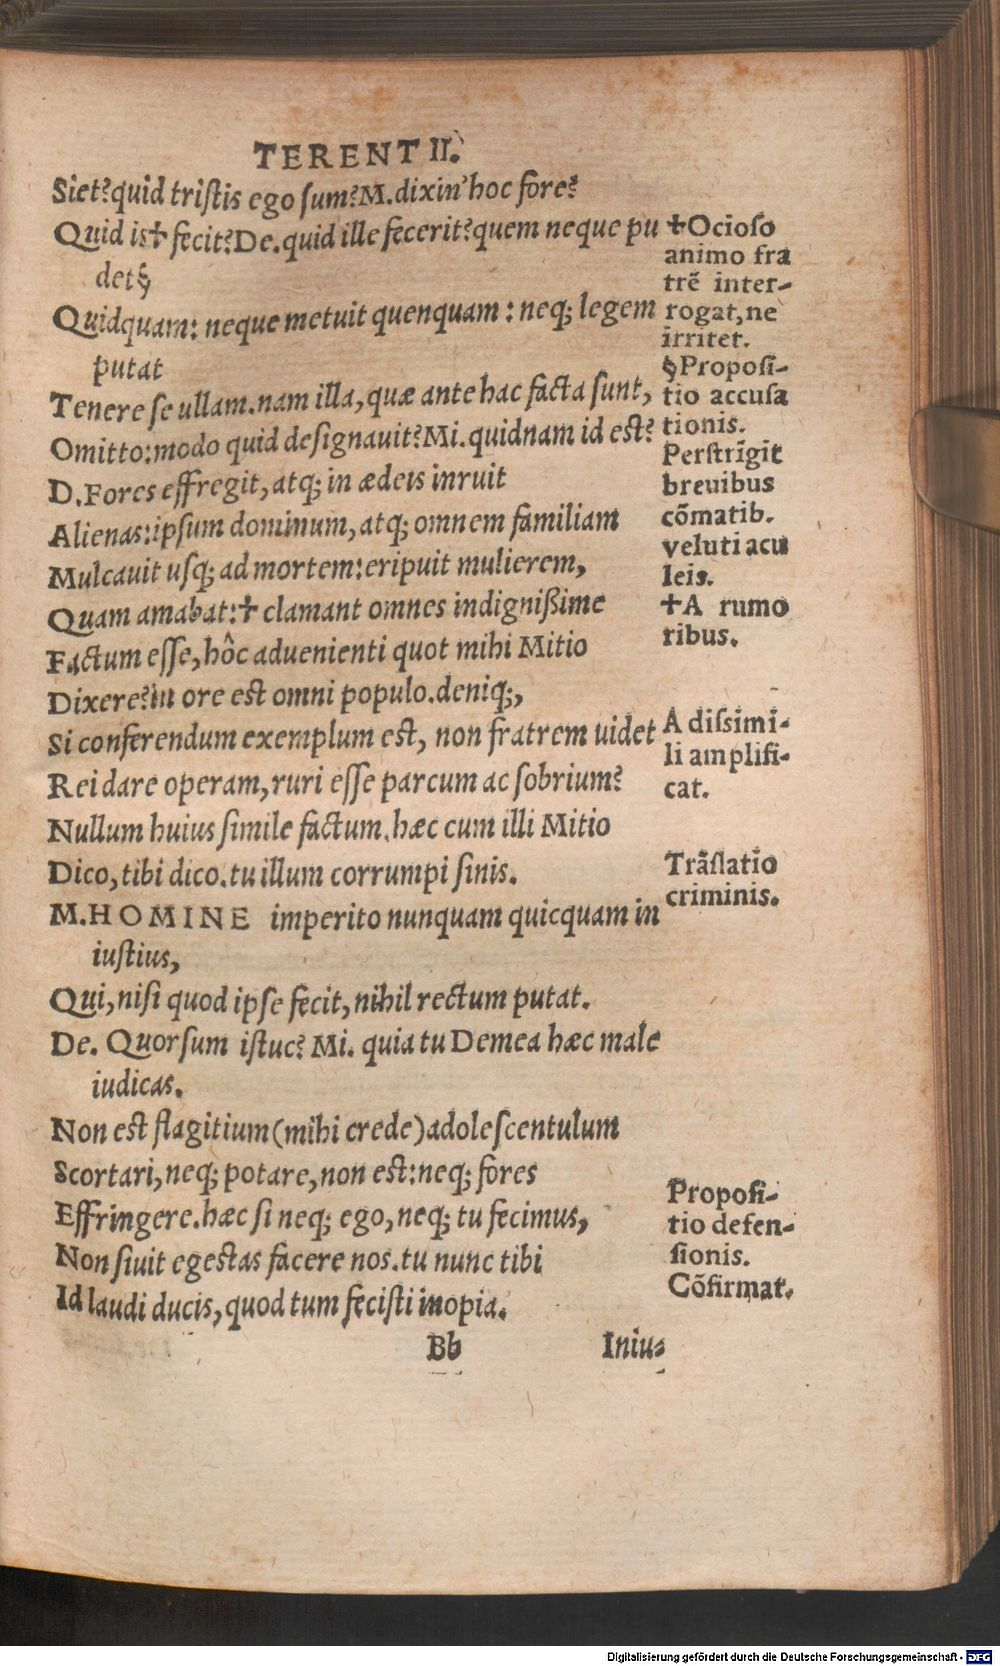 TERENTII.
Siet? quid tristis ego sum? M. dixin' hoc fore?
Quid is✝ fecit? De. quid ille fecerit? quem neque pu
det§
Quidquam: neque metuit quenquam: neq; legem
putat
Tenere se ullam. nam illa, quæ ante hac facta sunt,
Omitto: modo quid designauit? Mi. quidnam id est?
D. Fores effregit, atq; in ædeis inruit
Alienas: ipsum dominum, atq; omnem familiam
Mulcauit usq; ad mortem: eripuit mulierem,
Quam amabat: ✝ clamant omnes indignißime
Factum esse, hôc aduenienti quot mihi Mitio
Dixere? in ore est omni populo. deniq;,
Si conferendum exemplum est, non fratrem uidet
Rei dare operam, ruri esse parcum ac sobrium?
Nullum huius simile factum. hæc cum illi Mitio
Dico, tibi dico. tu illum corrumpi sinis.
M. HOMINE imperito nunquam quicquam in
iustius,
Qui, nisi quod ipse fecit, nihil rectum putat.
De. Quorsum istuc? Mi. quia tu Demea hæc male
iudicas.
Non est flagitium (mihi crede) adolescentulum
Scortari, neq; potare, non est: neq; fores
Effringere. hæc si neq; ego, neq; tu fecimus,
Non siuit egestas facere nos. tu nunc tibi
Id laudi ducis, quod tum fecisti inopia.
Bb Iniu-
✝Ocioso
animo fra
trē inter-
rogat, ne
irritet.
§Proposi-
tio accusa
tionis.
Perstrīgit
breuibus
cōmatib.
veluti acu
leis.
✝A rumo
ribus.
A dissimi-
li amplifi-
cat.
Trāslatio
criminis.
Proposi-
tio defen-
sionis.
Cōfirmat.
Digitalisierung gefördert durch die Deutsche Forschungsgemeinschaft - DFG